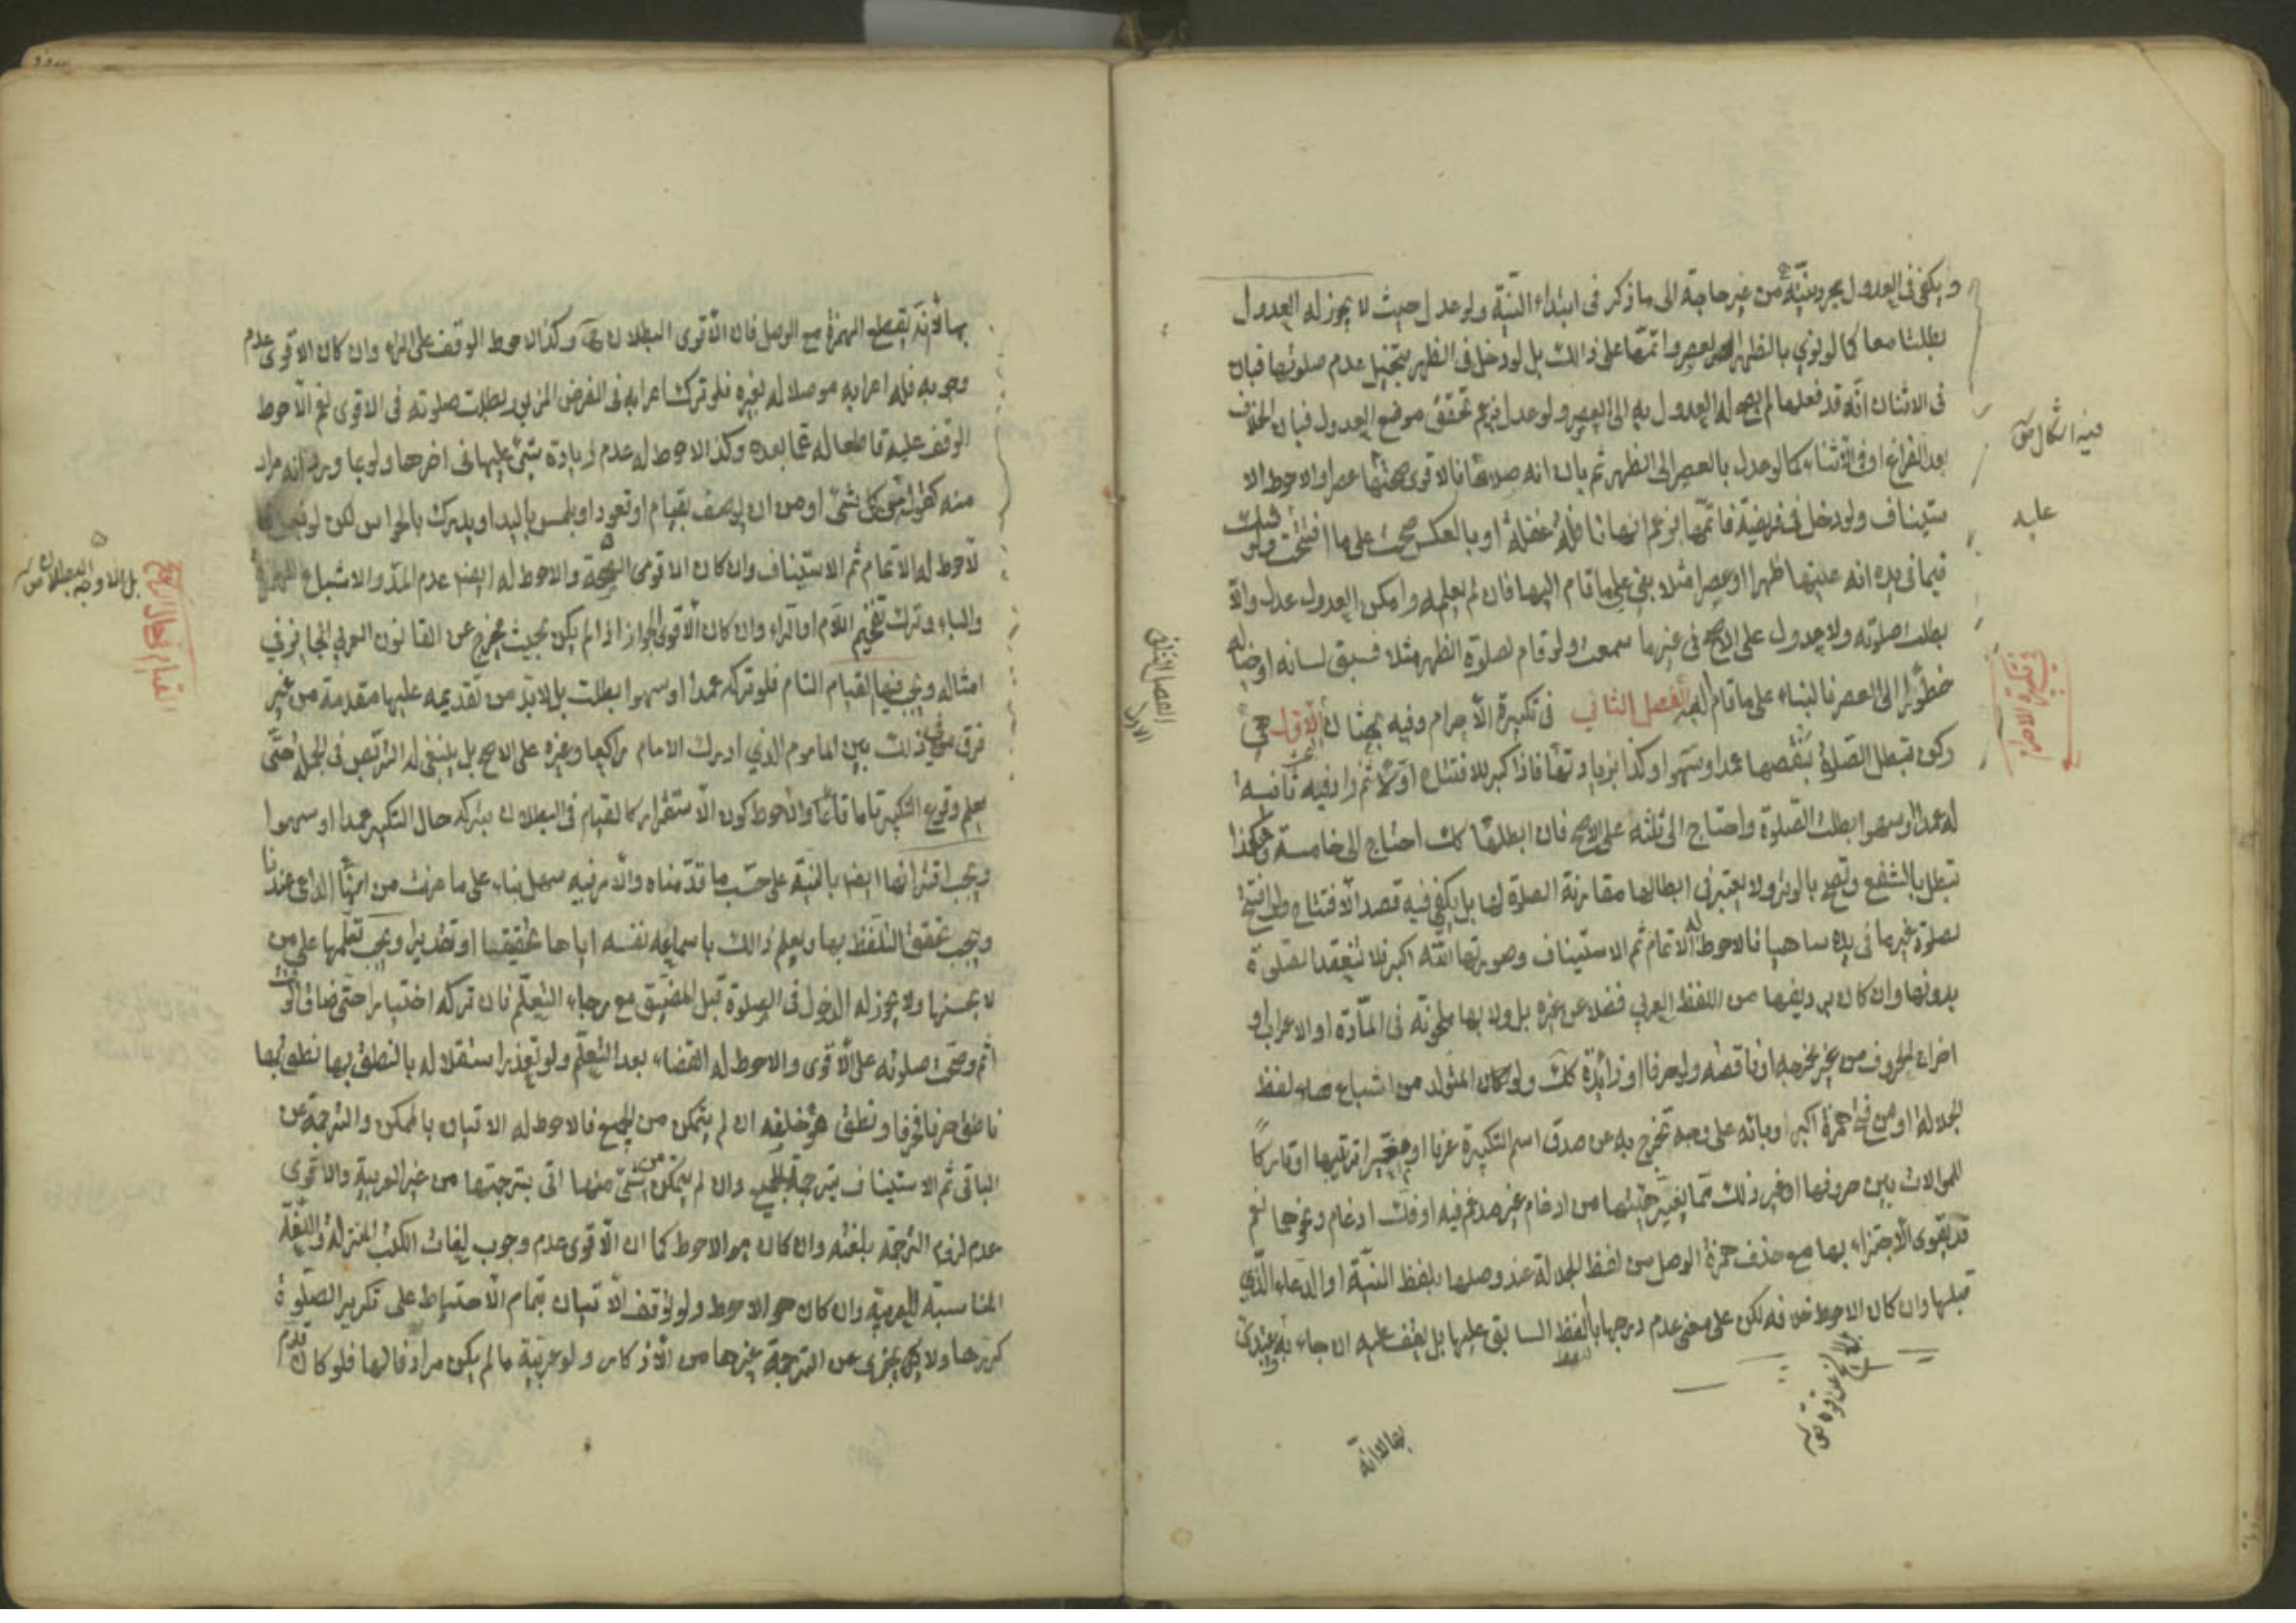 و يكفي في العدول مجرد نيته من غير حاجة الى ما ذكر في ابتداء النية ولو عدل حيث لا يجوز له العدول
بطلتا معا كما لو نوى بالظهر العصر واتمها على ذلك بل لو دخل في الظهر بتخيل عدم صلوتها فبان
في الاثناء انه قد فعلها لم يصح له العدول بها الى العصر ولو عدل بزعم تحقق موضع العدول فبان الخلاف
بعد الفراغ او في الاثناء كما لو عدل بالعصر الى الظهر ثم بان انه صلاها فالاقوى صحتها عصرا والاحوط الا
ستيناف ولو دخل في فريضة فاتمها بزعم انها نافلة غفلة او بالعكس صحت على ما افتتحت ولو شك
فيما في يده انه عينها ظهرا او عصرا مثلا بنى على ما قام اليها فان لم يعلمه وامكن العدول عدل والا
بطلت صلوته ولا عدول على الاصح في غير ما سمعت ولو قام لصلوة الظهر مثلا فسبق لسانه او خياله
خطورا الى العصر فالبناء على ما قام اليه الفصل الثاني في تكبيرة الاحرام وفيه بحثان الاول هي
ركن تبطل الصلوة بنقصها عمدا وسهوا وكذا بزيادتها فاذا كبر للافتتاح اولا ثم زاد فيه ثانية
له عمدا او سهوا بطلت الصلوة واحتاج الى ثلثة على الاصح فان ابطلها كك احتاج الى خامسة وهكذا
تبطل بالشفع وتصح بالوتر ولا يعتبر في ابطالها مقارنة الصلوة لها بل يكفي فيه قصد الافتتاح ولو افتتح
بصلوة غير ما في يده ساهيا فالاحوط له الاتمام ثم الاستيناف وصورتها الله اكبر فلا تنعقد الصلوة
بدونها وان كان برديفها من اللفظ العربي فضلا عن غيره بل ولا بها ملحونة في المادة او الاعراب او
اخراج الحروف من غير مخرجه او ناقصة ولو حرفا او زائدة كك ولو كان المتولد من اشباع هاء لفظ
الجلالة او من فتح همزة اكبر او بائه على وجه تخرج به عن صدق اسم التكبيرة عرفا او مغيرا ترتيبها او تاركا
للموالات بين حروفها او غير ذلك مما يغير هيئتها من ادغام غير مدغم فيه او فك ادغام ونحوهما نعم
قد يقوى الاجتزاء بها مع حذف همزة الوصل من لفظ الجلالة عند وصلها بلفظ النية او الدعاء الذي
قبلها وان كان الاحوط خلافه لكن على معنى عدم درجها باللفظ السابق عليها بل يقف عليه ان جاء به
فيه اشكال
عليه
في تكبيرة الاحرام
الفصل الثاني
الاول
بها لانه
بها لانه بقطع الهمزة مع الوصل فان الاقوى البطلان وكذا الاحوط الوقف على الراء وان كان الاقوى عدم
وجوبه فله اعرابه موصلا له بغيره فلو ترك اعرابه في الفرض المزبور بطلت صلوته في الاقوى نعم الاحوط
الوقف عليه قاطعا له عما بعده وكذا الاحوط له عدم زيادة شئ عليها في اخرها ولو بما ورد انه مراد
منه كقوله من كل شئ او من ان يوصف بقيام او قعود او يلمس باليد او يدرك بالحواس لكن لو
لاحوط له الاتمام ثم الاستيناف وان كان الاقوى الصحة والاحوط له ايضا عدم المد والاشباع
والباء وترك تفخيم اللام او الراء وان كان الاقوى الجواز اذا لم يكن بحيث يخرج عن القانون العربي الجائز في
امثاله ويجب فيها القيام التام فلو تركه عمدا او سهوا بطلت بل لا بد من تقديمه عليها مقدمة من غير
فرق في ذلك بين الماموم الذي ادرك الامام راكعا وغيره على الاصح بل ينبغي له التربص في الجملة حتى
يعلم وقوع التكبير تاما قائما والاحوط كون الاستقرار كالقيام في البطلان بتركه حال التكبير عمدا او سهوا
ويجب اقترانها ايضا بالنية على حسب ما قدمناه والامر فيه سهل بناء على ما عرفت من انها الداعي عندنا
ويجب تحقق التلفظ بها ويعلم ذلك باسماعه نفسه اياها تحقيقا او تقديرا ويجب تعلمها على من
لا يحسنها ولا يجوز له الدخول في الصلوة قبل المضيق مع رجاء التعلم فان تركه اختيارا حتى ضاق الوقت
اثم وصحت صلوته على الاقوى والاحوط له القضاء بعد التعلم ولو تعذر استقلاله بالنطق بها نطق بها
ناطق حرفا فحرفا ونطق هو خلفه ان لم يتمكن من الجميع فالاحوط له الاتيان بالممكن والترجمة عن
الباقي ثم الاستيناف بترجمة الجميع وان لم يتمكن من شئ منها اتى بترجمتها من غير العربية والاقوى
عدم لزوم الترجمة بلغته وان كان هو الاحوط كما ان الاقوى عدم وجوب لغات الكتب المنزلة واللغة
المناسبة للعربية وان كان هو الاحوط ولو توقف الاتيان بتمام الاحتياط على تكرير الصلوة
كررها ولا يجزى عن الترجمة غيرها من الاذكار ولو عربية ما لم يكن مرادفا لها فلو كان قدم
بل الاوجه البطلان
القيام فيها حال التكبير